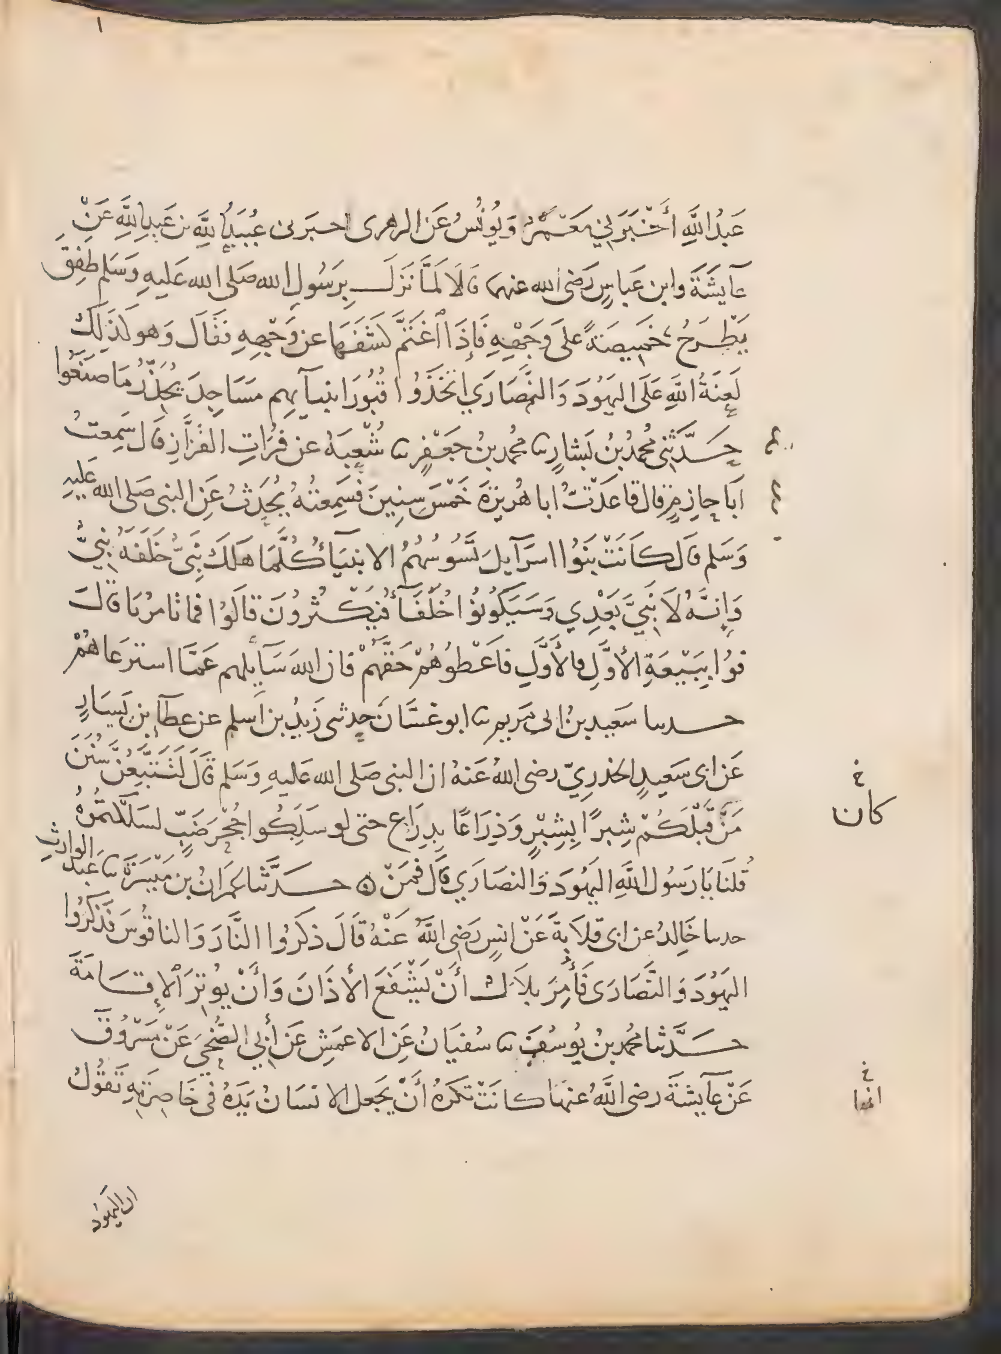 عَبْدُ اللَّهِ أَخْبَرَنِي مَعْمَرٌ وَيُونُسُ عَنِ الزهرى اخبرنى عُبَيْدُ اللَّهِ بن عَبْدِ اللَّهِ عَنْ
عآيِشَةَ وابن عَبَاسٍ رَضى الله عنهم قَالَا لَمَّا نَزَلَ بِرَسُولِ الله صَلى الله عَليهِ وَسَلم طَفِقَ
يَطْرَحُ خَميصَةً عَلَى وَجْهِهِ فَإِذَا اغْتَمَّ كَشَفَهَا عن وَجْهِهِ فَقَالَ وَهو كَذَلِكَ
لَعْنَةُ اللَّهِ عَلَى اليَهُودَ وَالنَّصَارَي اتَّخَذُوا قُبُورَ انبيآيهم مَسَاجِدَ يُحَذِّرُ مَا صَنَعُوا
حَدَّثَنِي مُحَمدُ بْنُ بَشارٍ نا محمد بنُ جَعْفرٍ نا شُعْبَةُ عن فُرَاتِ القَزَّازِ قَالَ سَمِعْتُ
اَبَا حازِمٍ قال قاعَدْتُ ابا هُرَيْرَةَ خَمْسَ سِنِينَ فَسَمِعْتُهُ يُحَدِثُ عَنِ النبى صَلى الله عَليهِ
وَسَلم قَالَ كَانَتْ بَنُوا اسرَآيِلَ تَسُوسُهُمُ الانبيَآءُ كُلَّمَا هَلَكَ نَبِىٌّ خَلَفَهُ نَبِىٌّ
وَإِنَّهُ لَا نَبِيَّ بَعْدِي وَسَيَكُونُوا خُلَفَآءُ فيَكْثُرُونَ قَالُوا فما تامرنا قالَ
فُوا بِبَيْعَةِ الأَوَّلِ فالأَوَّلِ فَاعْطُوهُمْ حَقَّهُمْ فان اللهَ سَآيِلهم عَمَّا استرعَاهُمْ
حدسا سَعِيد بنُ ابى مَريم نا ابو غسَّانَ حدثنى زَيدُ بن اَسلم عن عطآءِ بن يَسَارٍ
عَن ابى سَعِيدٍ الخدرِيِّ رضى اللهُ عَنهُ ان النبى صَلى الله عَليهِ وَسَلم قَالَ لَتَتَّبِعُنَّ سُنَنَ
مَنْ قَبْلَكُمْ شِبرًا بِشِبْرٍ وَذِرَاعًا بِذِرَاعٍ حتى لو سَلَكُوا جُحْرَ ضَبٍّ لسَلَكْتُمُوهُ
قُلنَا يَا رَسُولَ اللَّهِ اليَهُودَ وَالنصَارَي قَالَ فمَنْ ۞ حَدَّثنا عمرَانُ بن مَيْسَرَةَ نا عَبْد الوارثِ
حدسا خَالِدٌ عن ابى قلَابةَ عَنْ انسٍ رَضى اللَّهُ عَنْهُ قَالَ ذكَرُوا النَّارَ وَالناقُوسَ فَذَكَرُوا
اليَهُودَ وَالنَّصَارَى فَأُمِرَ بلَالٌ أَنْ يَشْفَعَ الأَذَانَ وَأَنْ يُوتِرَ الإِقَامَةَ
حَدَّثنا محمد بن يُوسُفَ نا سُفيَانُ عَنِ الاعمَشِ عَنْ أَبِي الضُّحَي عَنْ مَسْرُوقٍ
عَنْ عآيشَةَ رضى اللَّهُ عنها كانَتْ تكْرَهُ أَنْ يَجعل الانسانُ يَدَهُ فى خَاصِرَتِهِ تَقُولُ
كان
انها
ان اليَهُودَ